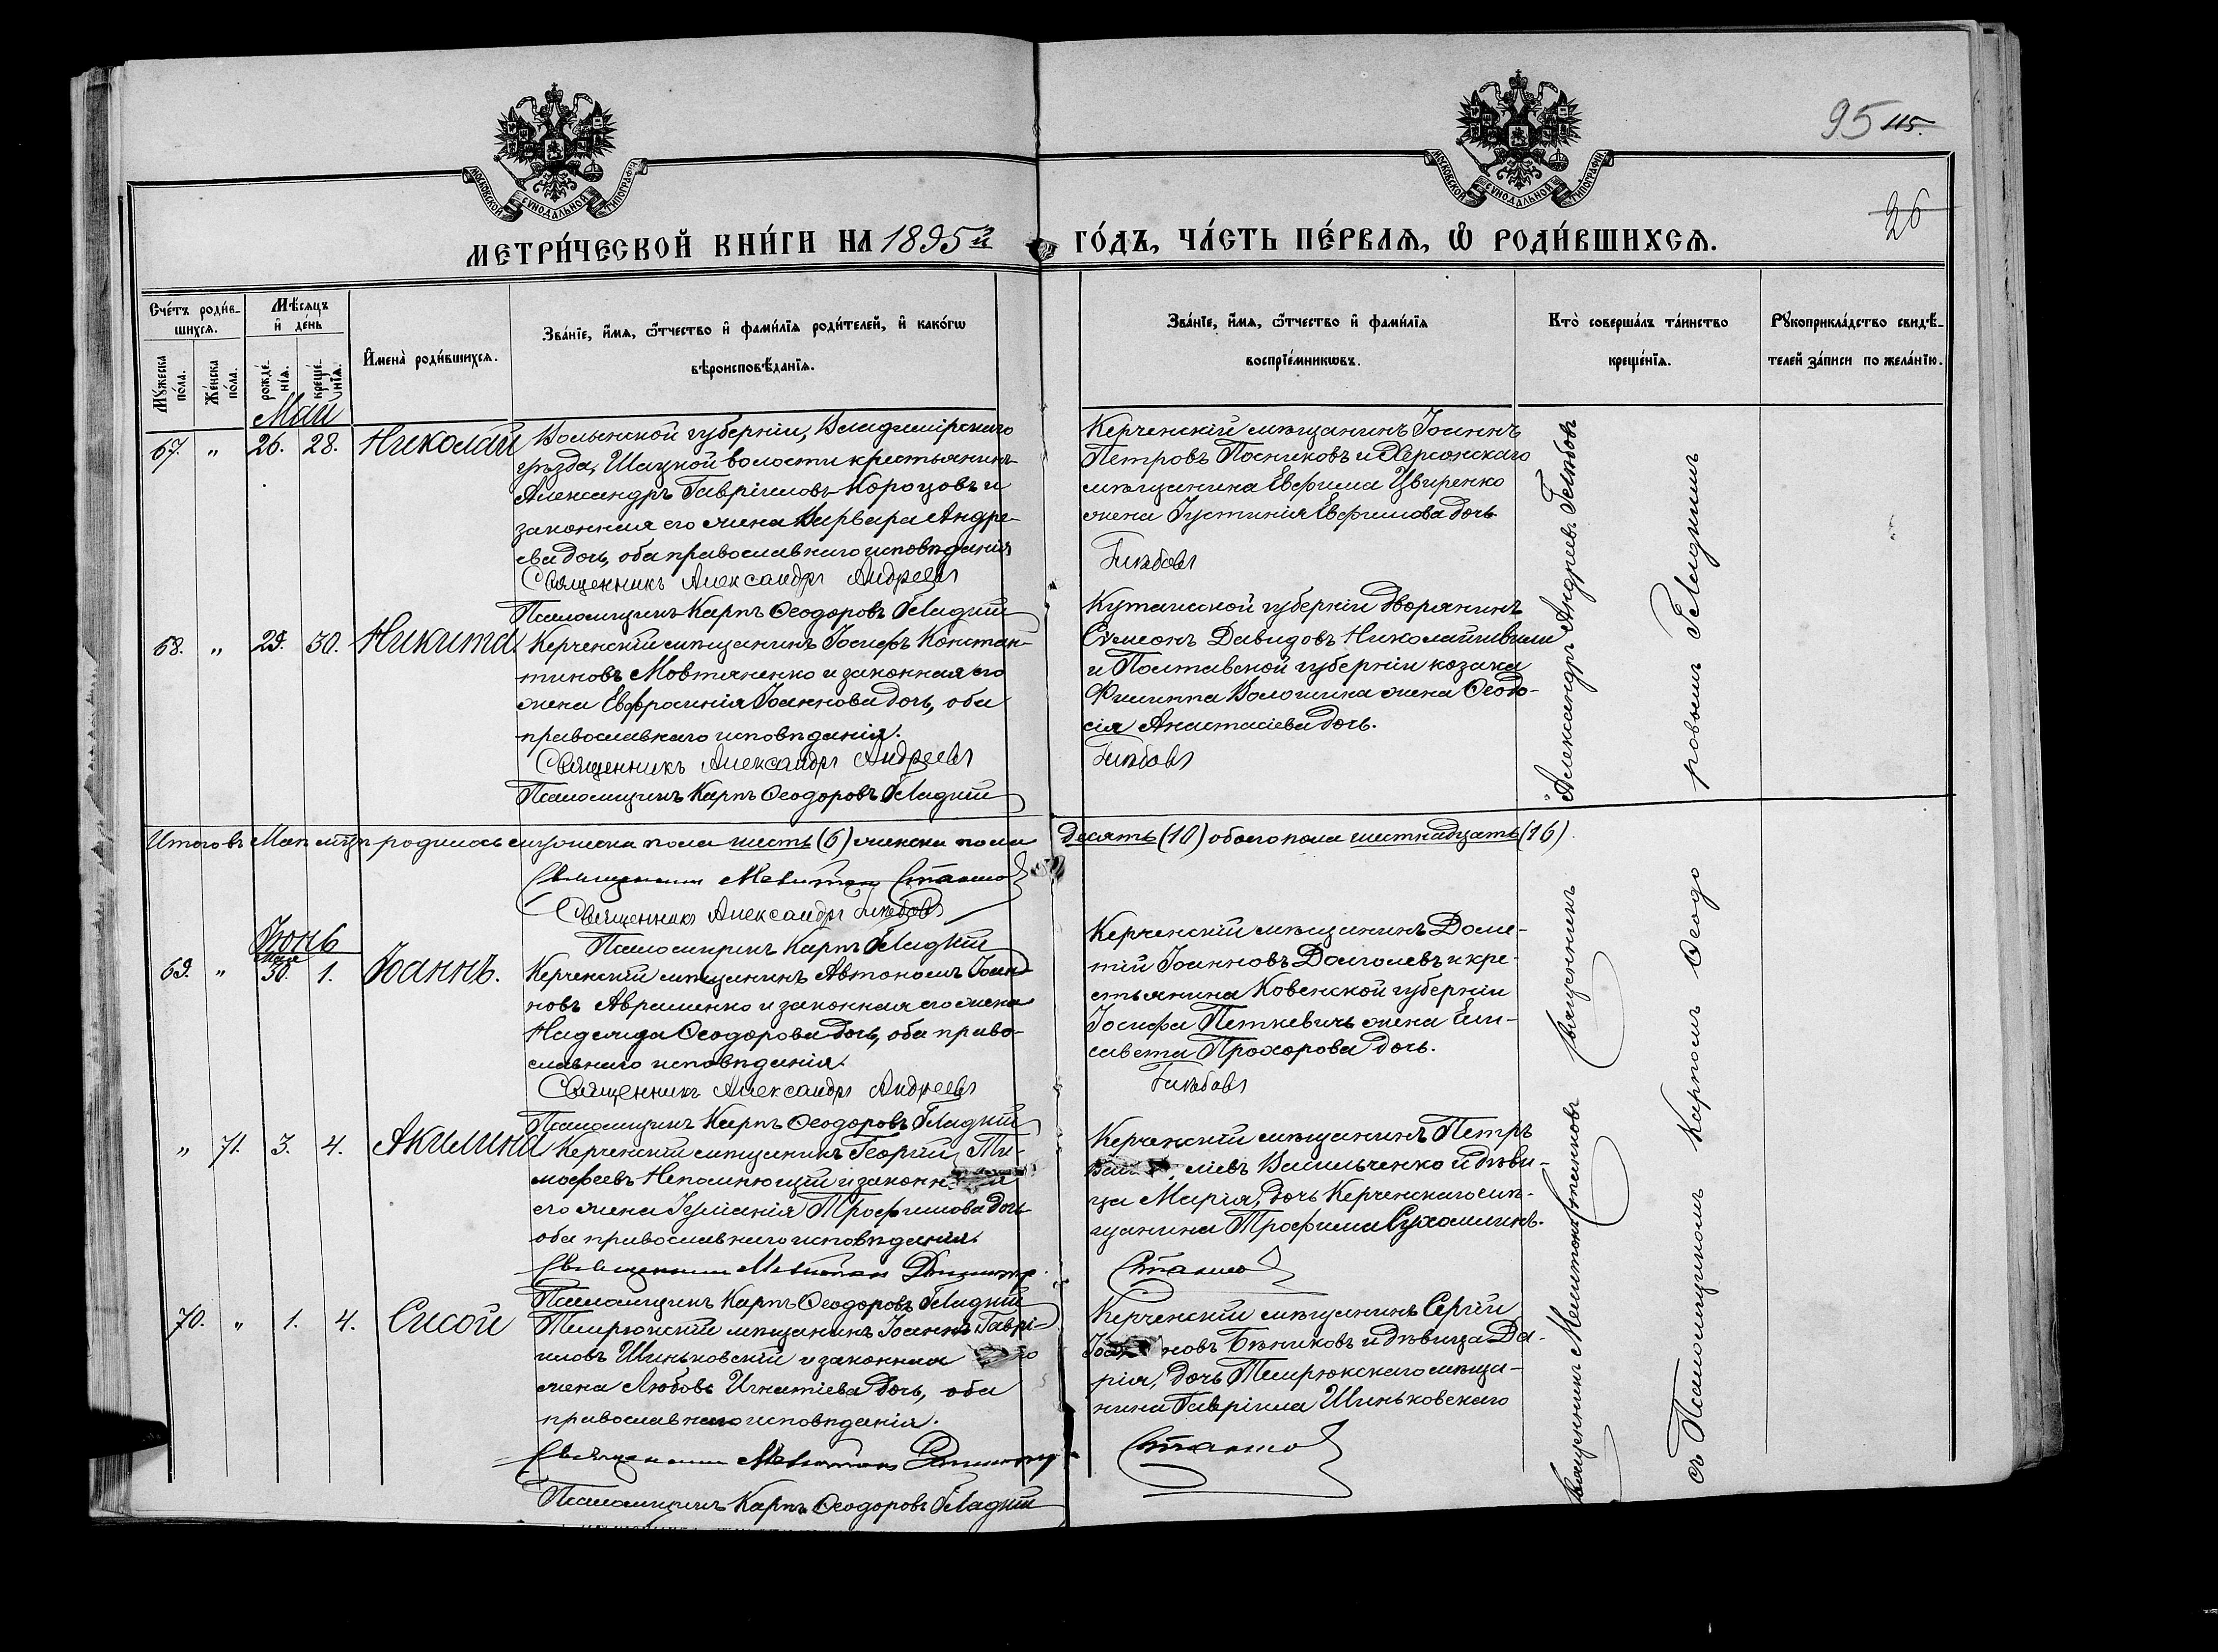 95 115.
26
МОСКОВСКОЙ СУНОДАЛЬНОЙ ТИПОГРАФІИ
МОСКОВСКОЙ СУНОДАЛЬНОЙ ТИПОГРАФІИ
МЕТРИ́ЧЕСКОЙ КНИ́ГИ НА 1895й ГО́ДЪ, ЧА́СТЬ ПЕ́РВАѦ, Ѽ РОДИ́ВШИХСѦ.
Сче́тъ роди́в-
шихсѧ.
Мꙋжеска по́ла.
Же́нска по́ла.
Мѣ́сѧцъ
и҆ де́нь
рожде́-
нїѧ.
креще́-
нїѧ.
И҆мена̀ роди́вшихсѧ.
Зва́нїе, и҆́мѧ, ѻ҆́тчество и҆ фами́лїѧ роди́телей, и҆ како́гѡ
вѣроисповѣ́данїѧ.
Зва́нїе, и҆́мѧ, ѻ҆́тчество и҆ фами́лїѧ
воспрїе́мникѡвъ.
Кто̀ соверша́лъ та́инство
креще́нїѧ.
Рꙋкоприкла́дство свидѣ́-
телей за́писи по жела́нїю.
Май
67. " 26. 28. Николай
Волынской губерніи, Владимірскаго
уѣзда, Шацкой волости крестьянинъ
Александръ Гавріиловъ Корощовъ и
законная его жена Варвара Андре-
ева дочь, оба православнаго исповѣданія
Священникъ Александръ Андреевъ
Псаломщикъ Карпъ Ѳеодоровъ Гладкій
Керченскій мѣщанинъ Іоаннъ
Петровъ Посниковъ и Херсонскаго
мѣщанина Евфима Цвиренко
жена Іустинія Евфимова дочь
Глѣбовъ
68. " 29. 30. Никита.
Керченскій мѣщанинъ Іосифъ Констан-
тиновъ Мовтяненко и законная его
жена Евфросинія Іоаннова дочь, оба
православнаго исповѣданія.
Священникъ Александръ Андреевъ
Псаломщикъ Карпъ Ѳеодоровъ Гладкій
Кутаисской губерніи дворянинъ
Сѵмеонъ Давидовъ Николайшвили
и Полтавской губерніи козака
Филиппа Волошина жена Ѳеодо-
сія Анастасіева дочь.
Глѣбовъ
Итого въ Маѣ мѣцѣ родилось мужеска пола шесть (6) женска пола десять (10) обоего пола шестнадцать (16).
Священникъ Мелитонъ
Священникъ Александръ Глѣбовъ
Псаломщикъ Карпъ Гладкій
Іюнь
69. " Мая 30. 1. Іоаннъ.
Керченскій мѣщанинъ Автономъ Іоан-
новъ Авраменко и законная его жена
Надежда Ѳеодорова дочь, оба право-
славнаго исповѣданія.
Священникъ Александръ Андреевъ
Псаломщикъ Карпъ Ѳеодоровъ Гладкій
Керченскій мѣщанинъ Доме-
тій Іоанновъ Долголевъ и кре-
стьянина Ковенской губерніи
Іосифа Петкевичъ жена Ели-
савета Прохорова дочь.
Глѣбовъ
" 71. 3. 4. Акилина
Керченскій мѣщанинъ Георгій Ти-
мофеевъ Непомнющій и законная
его жена Іуліанія Трофимова дочь
оба православнаго исповѣданія.
Священникъ Мелитонъ
Псаломщикъ Карпъ Ѳеодоровъ Гладкій
Керченскій мѣщанинъ Петръ
Васильченко и дѣви-
ца Марія, дочь Керченскаго мѣ-
щанина Трофима Сухомлинъ.
70. " 1. 4. Сисой
Темрюкскій мѣщанинъ Іоаннъ Гаврі-
иловъ Шиньковскій и законная
жена Любовь Игнатіева дочь, оба
православнаго исповѣданія.
Священникъ Мелитонъ
Псаломщикъ Карпъ Ѳеодоровъ Гладкій
Керченскій мѣщанинъ Сергій
новъ Бѣниковъ и дѣвица Да-
рія, дочь Темрюкскаго мѣща-
нина Гавріила Шиньковскаго
Священникъ Мелитонъ Священникъ Александръ Андреевъ Глѣбовъ
съ Псаломщикомъ Карпомъ Ѳеодо
ровымъ Гладкимъ